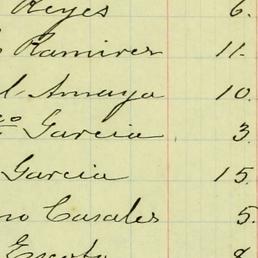 Reyes 6.
Ramirez 11.
l Amaya 10.
co Garcia 3.
Garcia 15.
no Casales 5.
Escoto 8.